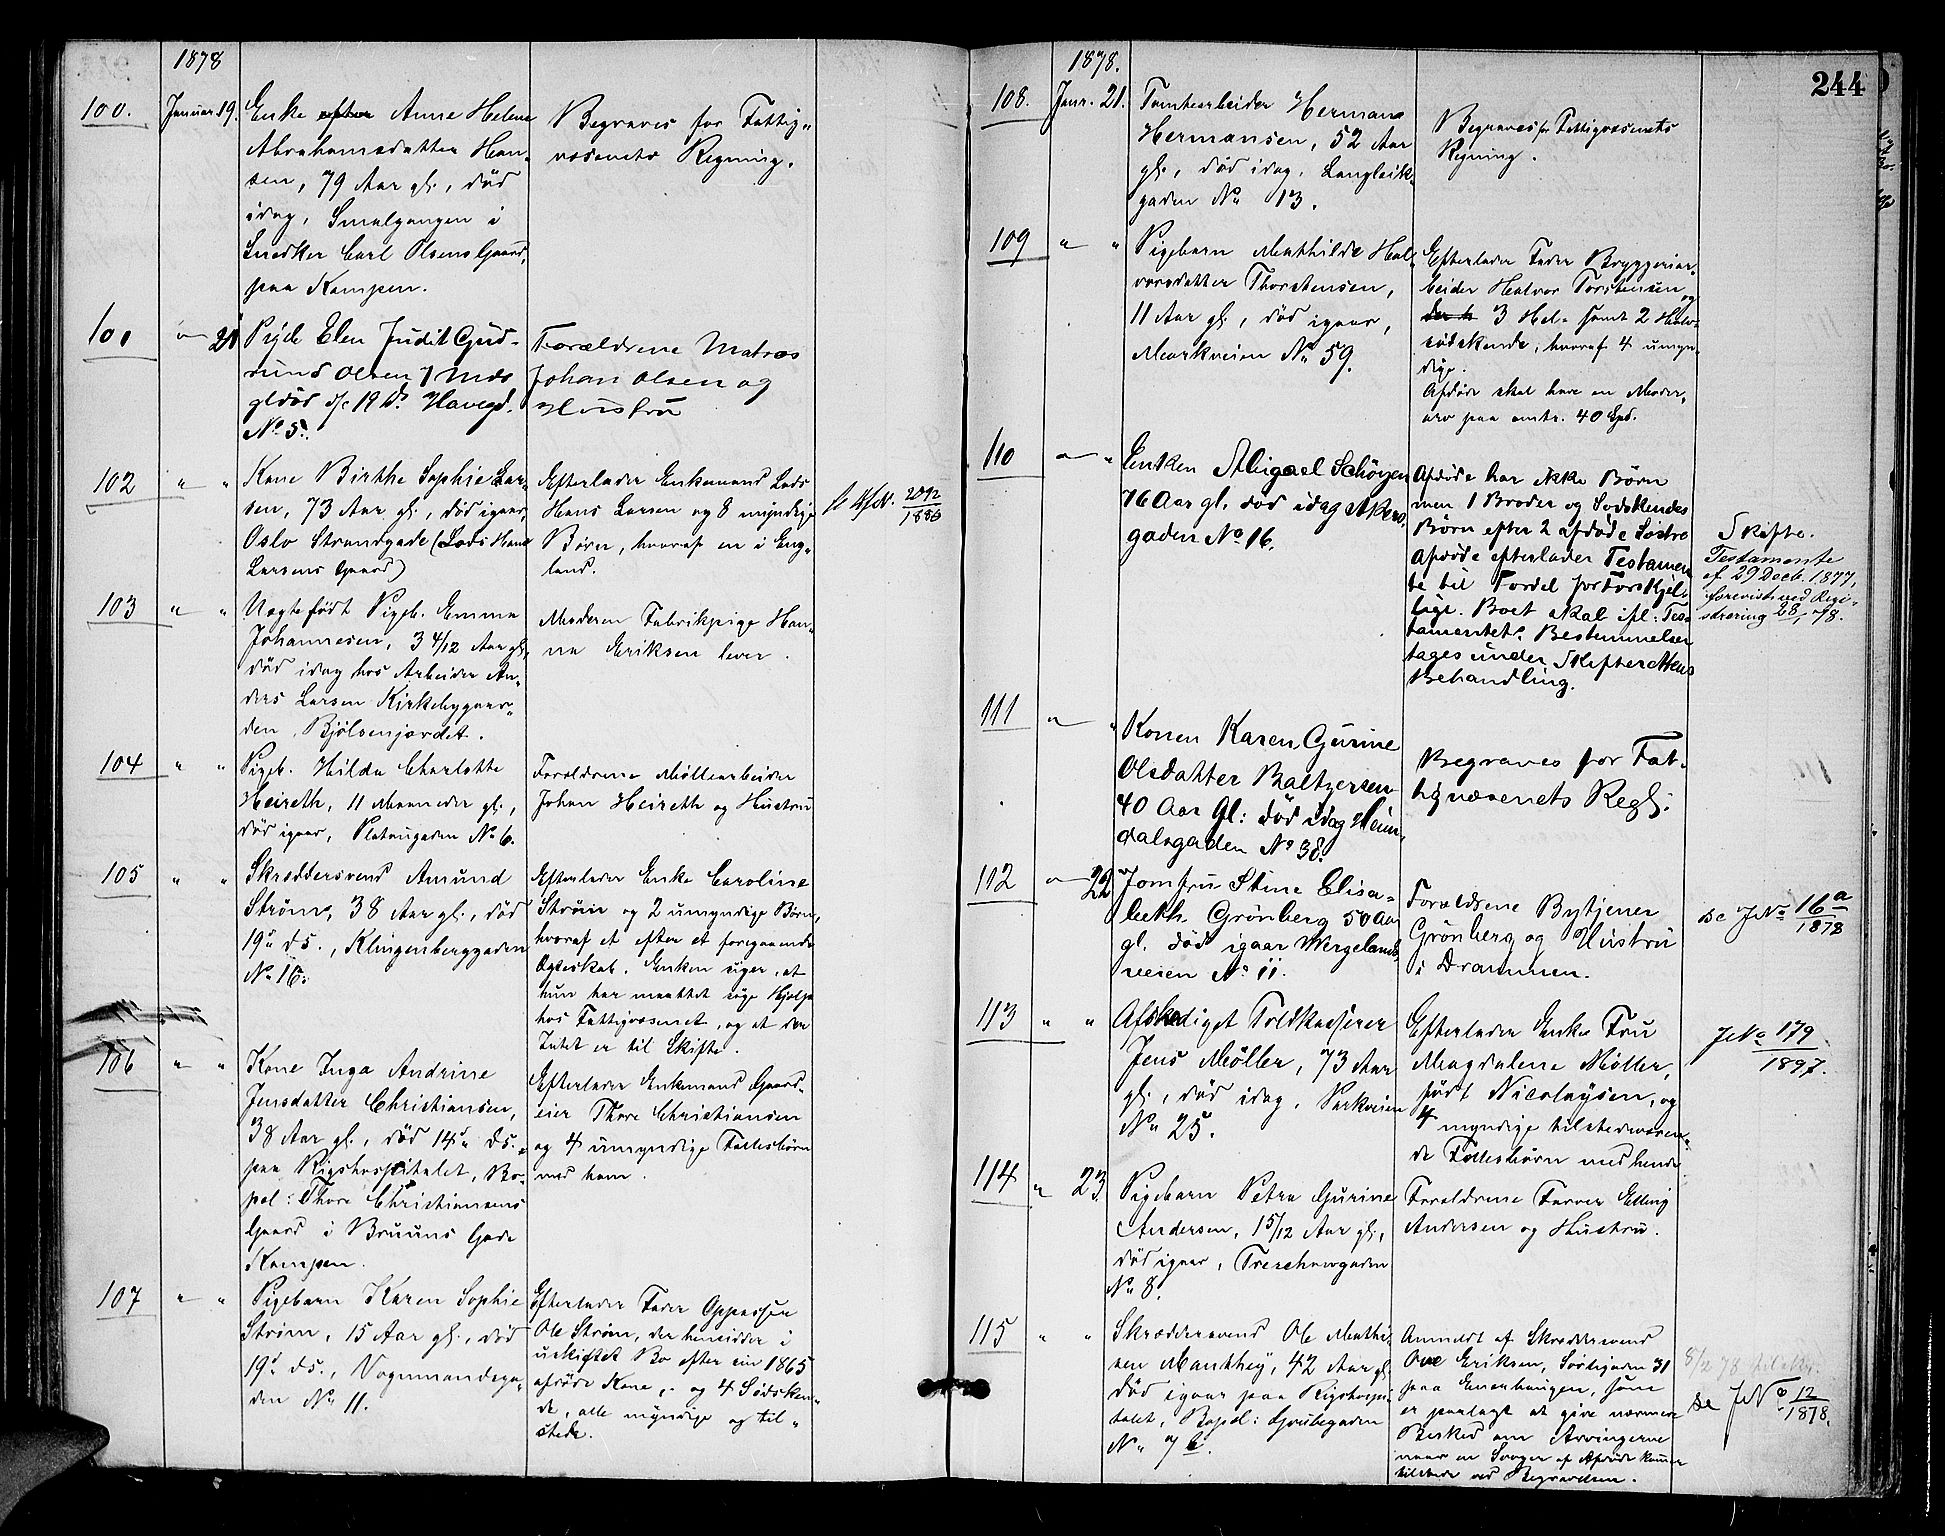 1878
100.
Januar 19.
Enke efter Anne Helene
Abrahamsdatter Han-
sen, 79 Aar gl., død
idag, Smalgangen i
Snedker Carl Olsens Gaard,
paa Kampen.
Begraves for Fattig-
væsenets Regning.
101
" 21
Pigeb. Elen Judit Gud-
rund Olsen 7 Mdr
gl død d/c 19 ds. Havegd.
No 5.
Forældrene Matros
Johan Olsen og
Hustru
102
" "
Kone Birthe Sophie Lar-
sen, 73 Aar gl., død igaar,
Oslo Strandgade (Lods Hans
Larsens Gaard)
Efterlader Enkemand Lods
Hans Larsen og 8 myndige
Børn, hvoraf en i Eng-
land.
2092
1886
103
" "
Uegtefødt Pigeb. Emma
Johannesen, 3 4/12 Aar gl.,
død idag hos Arbeider An-
ders Larsen Kirkebygaar-
den, Bjølsenjordet.
Moderen Fabrikpige Han-
na Eriksen lever.
104
" "
Pigeb. Hilda Charlotte
Heireth, 11 Maaneder gl.,
død igaar, Platougaden No 6.
Forældrene Møllearbeider
Johan Heireth og Hustru
105
" "
Skræddersvend Amund
Strøm, 38 Aar gl., død
19de ds., Klingenberggaden
No 16.
Efterlader Enke Caroline
Strøm og 2 umyndige Børn,
hvoraf et efter et foregaaende
Ægteskab. Enken siger, at
hun har maattet søge Hjælp
hos Fattigvæsenet, og at der
Intet er til Skifte.
106
" "
Kone Inga Andrine
Jensdatter Christiansen,
38 Aar gl., død 14de ds.
paa Rigshospitalet, Bo-
pæl: Thore Christiansens
Gaard i Bruuns Gade
Kampen.
Efterlader Enkemand Gaard-
eier Thore Christiansen
og 4 umyndige Fællesbørn
med ham.
107
" "
Pigebarn Karen Sophie
Strøm, 15 Aar gl., død
19de ds., Vognmandsga-
den No 11.
Efterlader Fader Oppasser
Ole Strøm, der hensidder i
uskiftet Bo efter sin 1865
afdøde Kone, og 4 Sødsken-
de, alle myndige og til-
stede.
244
1878.
108.
Janr. 21.
Tomtearbeider Herman
Hermansen, 52 Aar
gl., død idag, Langleik-
gaden No 13.
Begraves for Fattigvæsenets
Regning.
109
" "
Pigebarn Mathilde Hal-
vorsdatter Thorstensen,
11 Aar gl., død igaar,
Markveien No 59.
Efterlader Fader Bryggeriar-
beider Halvor Torstensen og
3 Hel- samt 2 Halv-
sødskende, hvoraf 4 umyn-
dige.
Afdøde skal have en Moder-
arv paa omtr. 40 Spd.
110
" "
Enken Abigael Schöyen
76 Aar gl. død idag Akers-
gaden No 16.
Afdøde har ikke Børn
men 1 Broder og Sødskendes
Børn efter 2 afdøde Søstre
Afdøde efterlader Testamen-
te til Fordel for Forskjel-
lige. Boet skal ifl. Tes-
tamentets Bestemmelser
tages under Skifterettens
Behandling.
Skifte.
Testamente
af 29 Decb. 1877,
forevist ved Regi-
strering 28/1 78.
111
" "
Konen Karen Gurine
Olsdatter Baltzersen
40 Aar Gl: død idag Heim-
dalsgaden No 38.
Begraves for Fat-
tigvæsenets Regl:
112
" 22
Jomfru Stine Elisa-
beth Grønberg 50 Aar
gl. død igaar Wergelands
veien No 11.
Forældrene Bytjener
Grønberg og Hustru
i Drammen.
se JNo 16a
1878
113
" "
Afskediget Toldkasserer
Jens Møller, 73 Aar
gl., død idag, Parkveien
No 25.
Efterlader Enke Fru
Magdalene Møller,
født Nicolaysen, og
4 myndige tilstedeværen-
de Fællesbørn med hende
JNo 179
1897.
114
" 23
Pigebarn Petra Gurine
Andersen, 1 5/12 Aar gl.,
død igaar, Treschowsgaden
No 8.
Forældrene Farver Elling
Andersen og Hustru.
115
" "
Skræddersvend Ole Mathi-
sen Manthey, 42 Aar gl.
død igaar paa Rigshospi-
talet, Bopæl: Grubegaden
No 7 b.
Anmeldt af Skræddersvend
Ove Eriksen, Sørligaden 31
paa Enerhaugen, som
er paalagt at give nærmere
Besked om Arvingerne
naar en Svoger af Afdøde kommer
tilstede ved Begravelsen.
8/2 78
se JNo 12
1878.